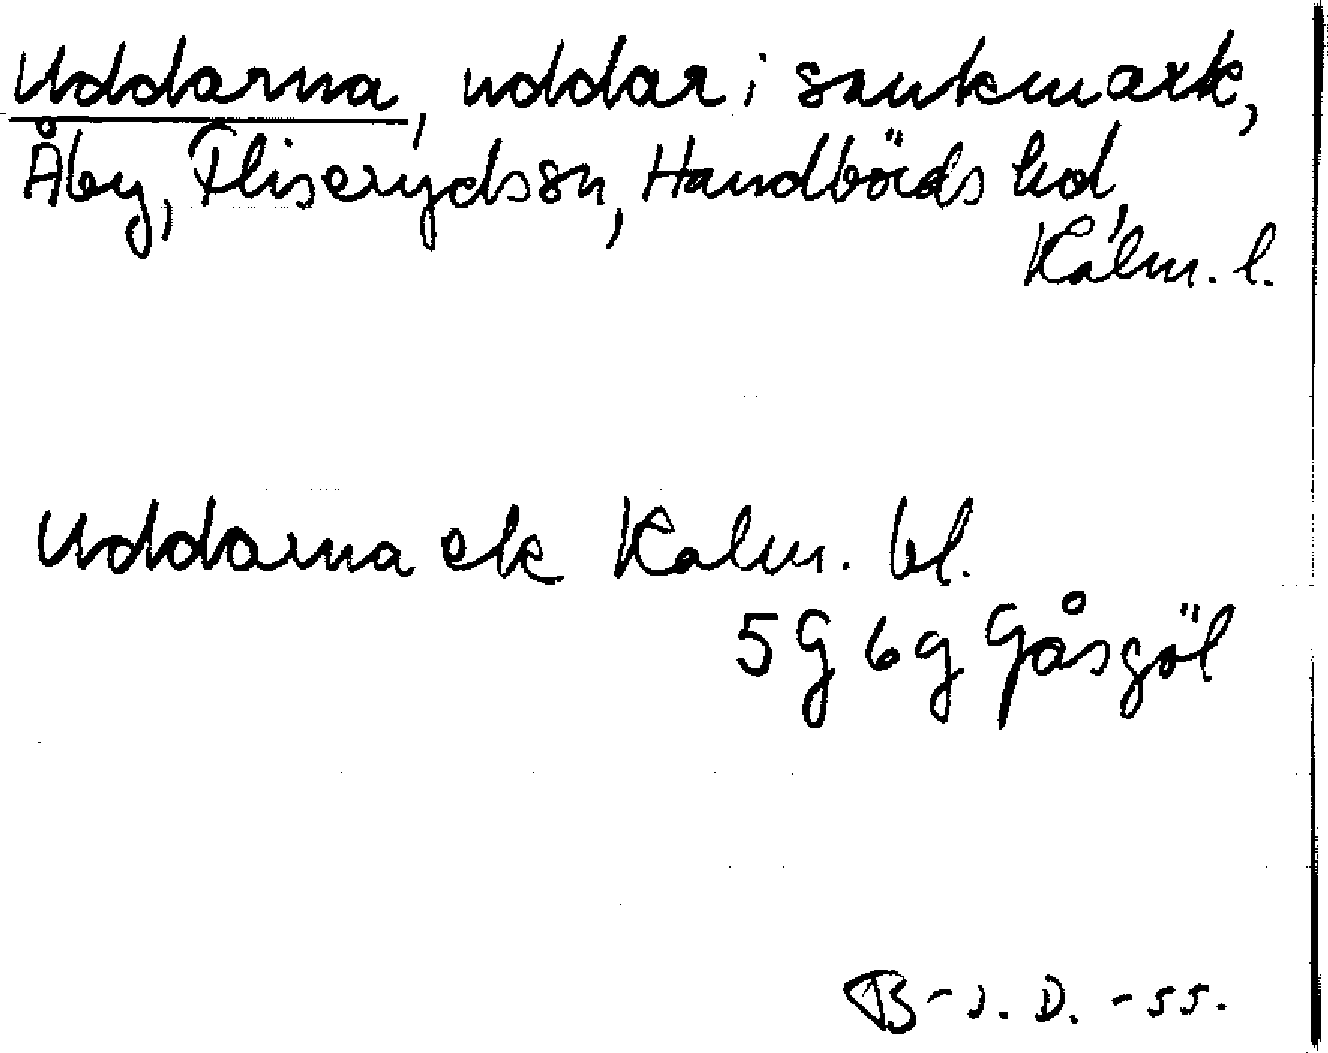 Uddarna, uddar i sankmark,
Åby, Fliserydssn, Handbörds hd,
Kalm. l.
Uddarna ek Kalm. bl.
5 G 6 g Gåsgöl
B-J. D. -55.